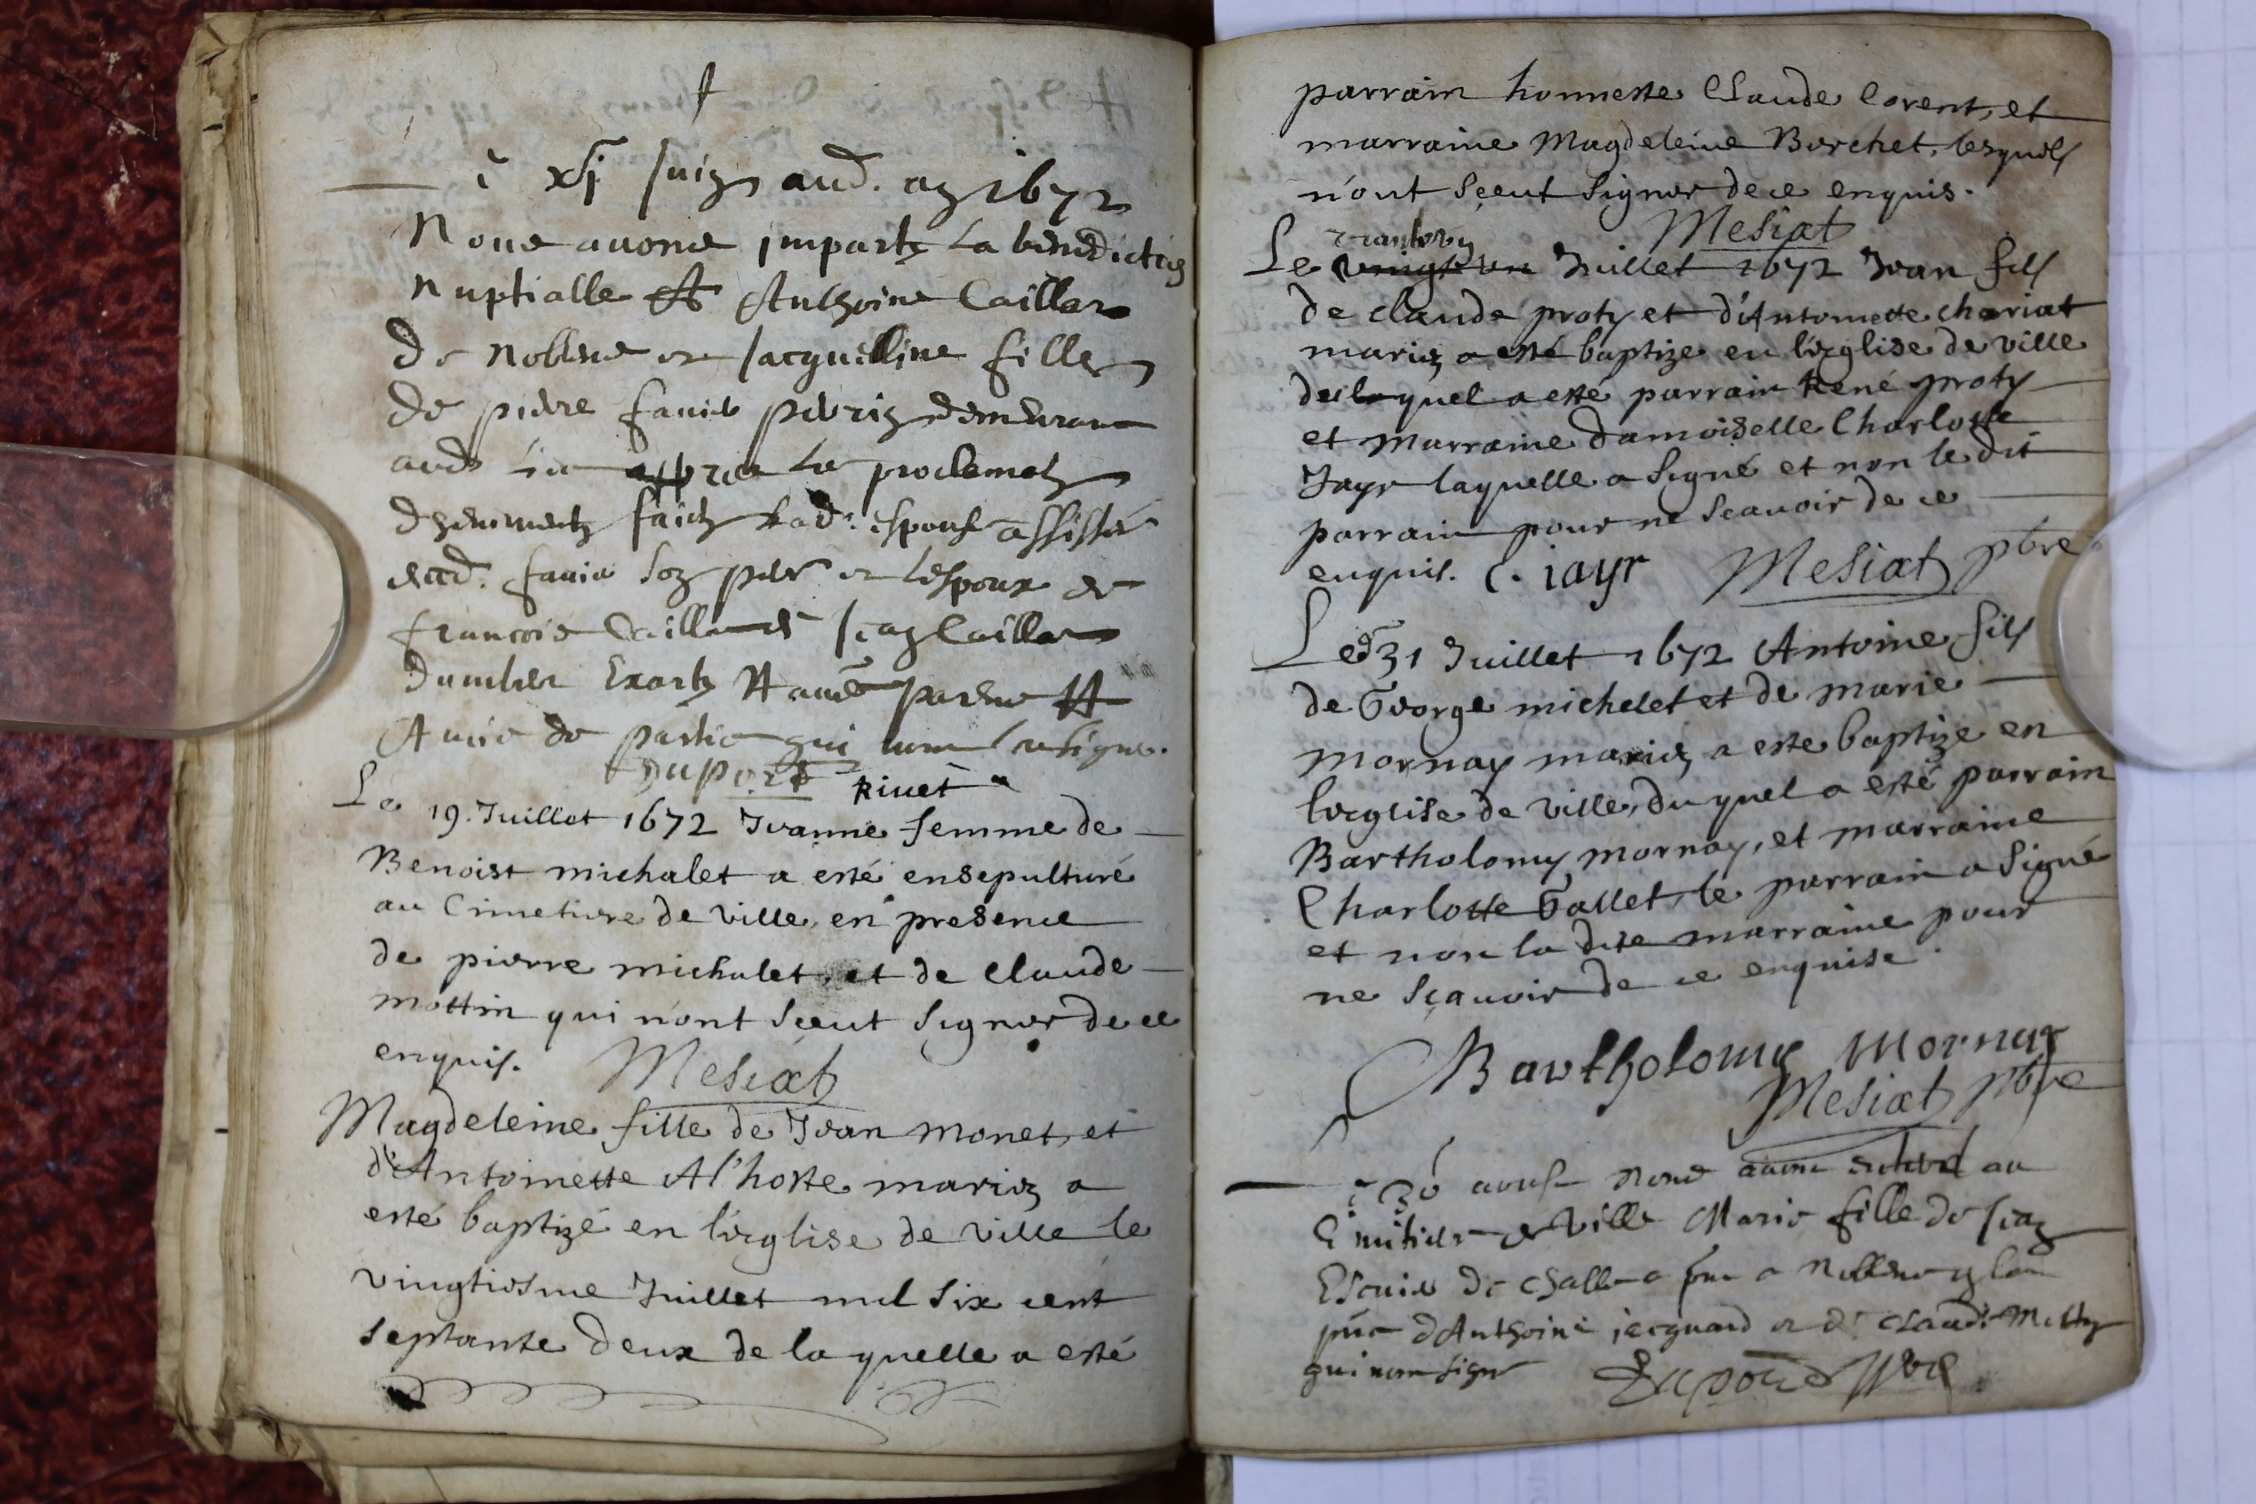 Juin aud. an 1672
Nous avons imparty la benediction
nuptialle A Anthoine Caillar
de Noblens et Jacquelline fille
de pierre favier demeurant
apres la proclamaōn
faict lad. espouse assistée
dud. favier son pere et lespoux de
francois Caillard Jean Caillar
A autres parens A
Amis de partie qui nont
Duport
Rivet
Le 19. Juillet 1672 Jeanne femme de
Benoist michalet a esté ensepulturé
au Cimetiere de ville, en presence
de pierre michalet, et de Claude
mottin qui n'ont sceut signer de ce
enquis. Mesiat
Magdeleine fille de Jean Monet, et
d'Antoinette Al'hoste mariez a
esté baptizé en l'eglise de ville le
vingtiesme Juillet mil six cent
septante deux de laquelle a esté
parrain honneste Claude Corent, et
marraine Magdeleine Borchet, lesquels
n'ont sçeut signer de ce enquis.
Mesiat
trenteun
Le vingt un Juillet 1672 Jean fils
de claude proty et d'Antoinette chariat
mariez a esté baptize en l'eglise de ville
duquel a esté parrain René proty
et marraine damoiselle Charlotte
Jayr laquelle a signé et non le dit
parrain pour ne sçavoir de ce
enquis. C. iayr Mesiat pbre
Led 31 Juillet 1672 Antoine fils
de George michelet et de marie
mornay mariez a este baptize en
l'eglise de ville, du quel a esté parrain
Bartholomy mornay, et marraine
Charlotte Gallet, le parrain a signé
et non la dite marraine pour
ne sçavoir de ce enquise.
Bartholomy Mornay
Mesiat pbre
aoust Nous avons enterré au
Cimitiere de Ville Marie fille de Jean
Escuier de Challe a Noblens
d'Anthoine jecquard et de Claude Mottin
qui nont signé Dupord